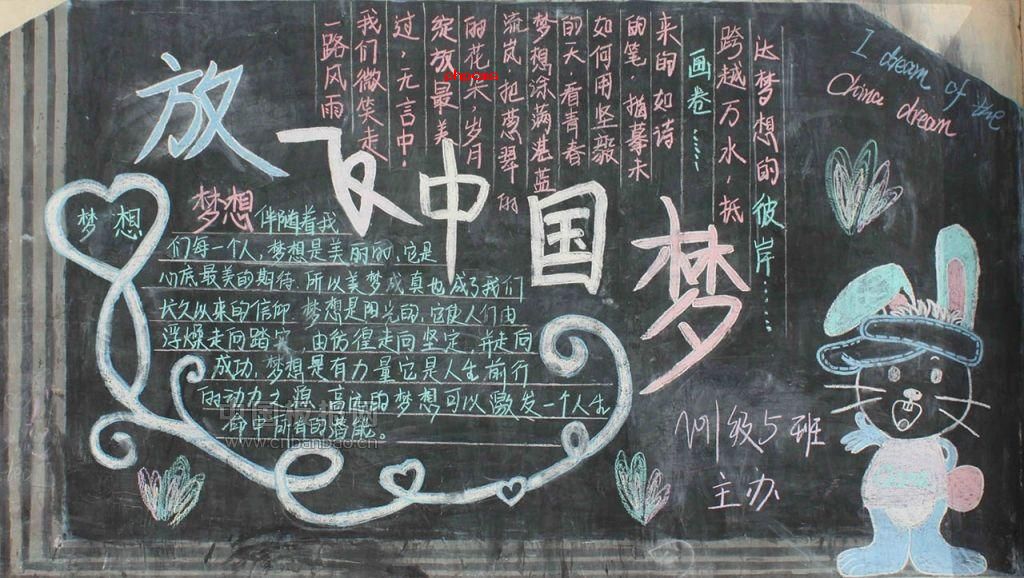 I dream of the
China dream
一路风雨
我们微笑走
过，无言中，
绽放最美
的花朵，岁月
流岚把葱翠的
梦想涂满湛蓝
的天，看青春
如何用坚毅
的笔，描摹未
来的如诗
画卷……
跨越万水，抵
达梦想的彼岸……
放飞中国梦
梦想
梦想伴随着我
们每一个人，梦想是美丽的，它是
心底最美的期待，所以美梦成真也成了我们
长久以来的信仰 梦想是阳光的，它使人们由
浮燥走向踏实，由彷徨走向坚定，并走向
成功，梦想是有力量它是人生前行
的动力之源，高度的梦想可以激发一个人生
命中所有的潜能。
级5班
主办